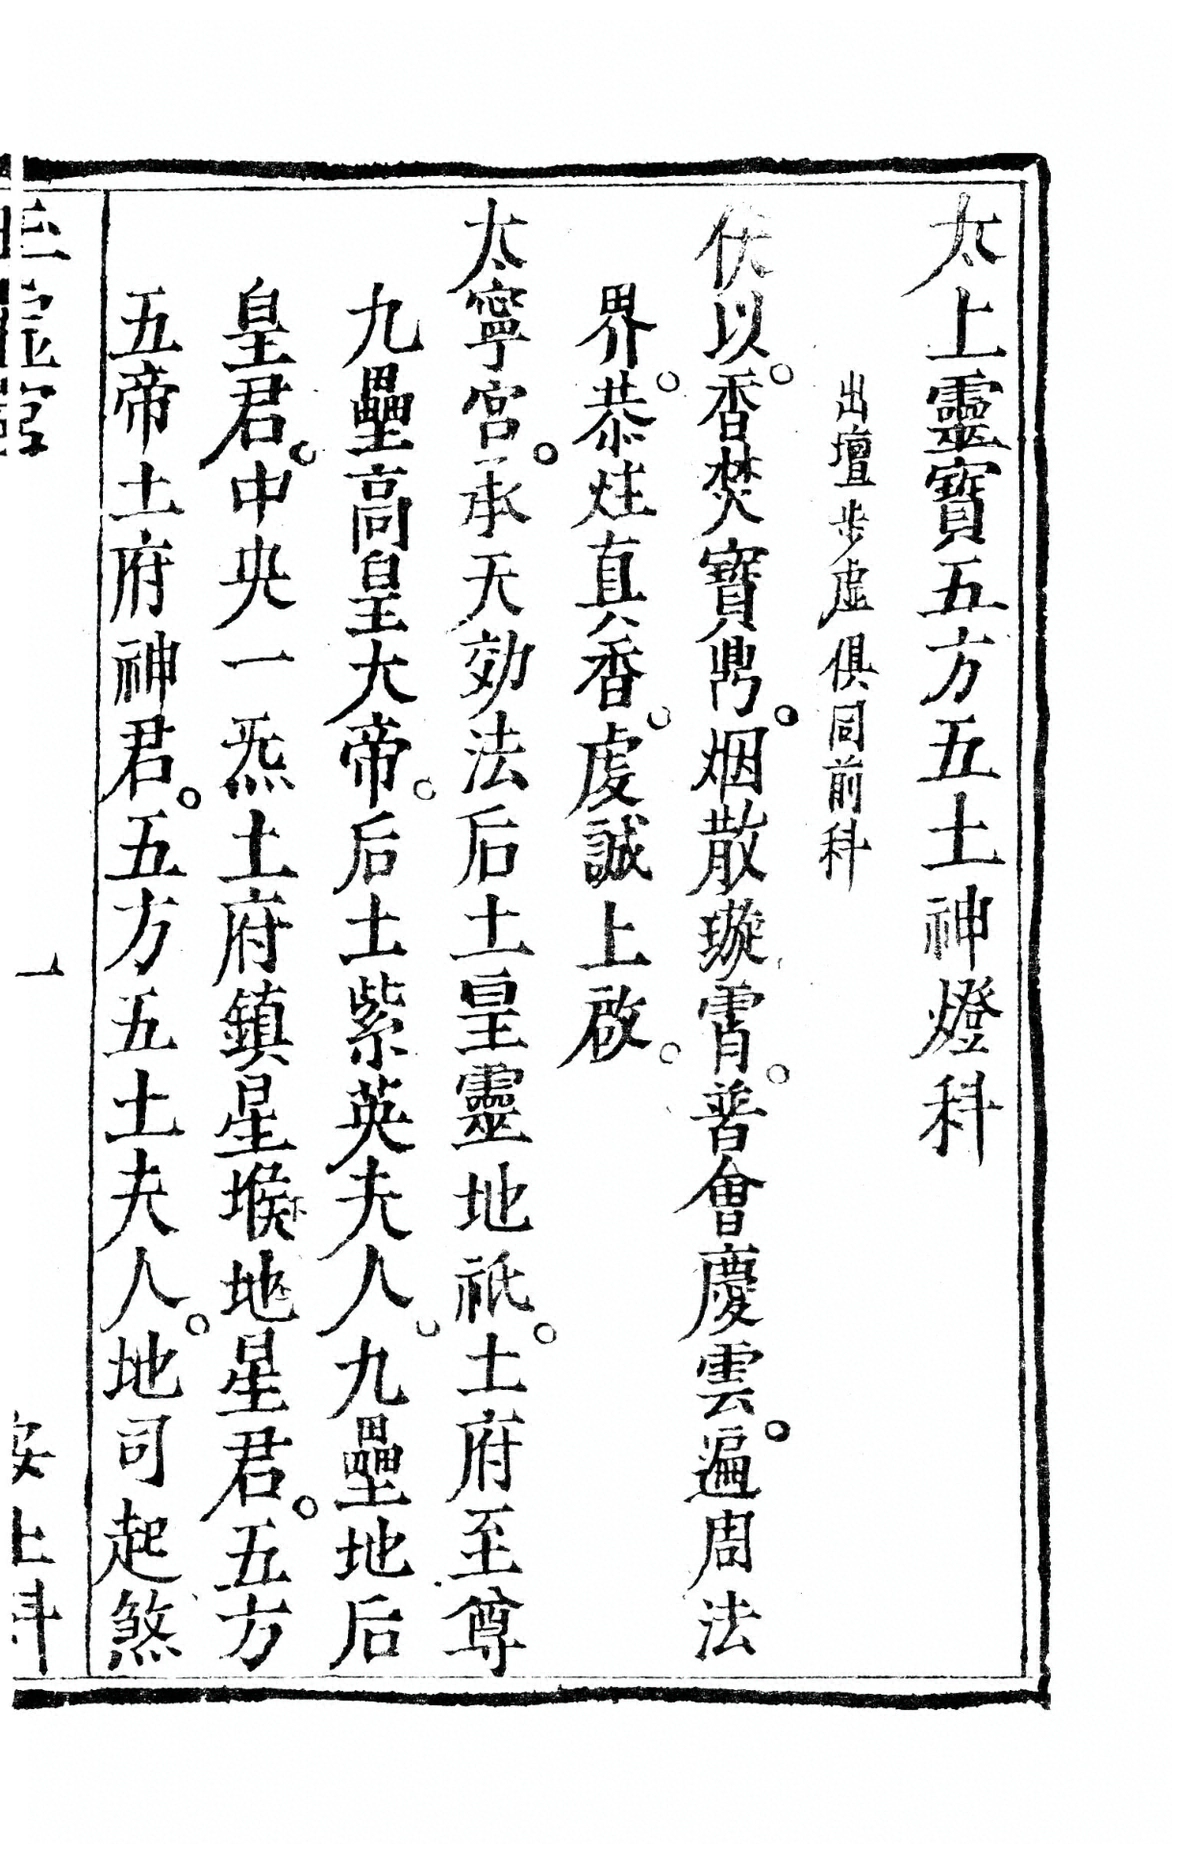 太上靈寶五方五土神燈科
出壇步虛俱同前科
伏以香焚寶鼎烟散璇霄普會慶雲遍周法
界恭炷真香虔誠上啟
太寧宮承天効法后土皇靈地祇土府至尊
九壘高皇大帝后土紫英夫人九壘地后
皇君中央一炁土府鎮星堠地星君五方
五帝土府神君五方五土夫人地司起煞
一
安土科